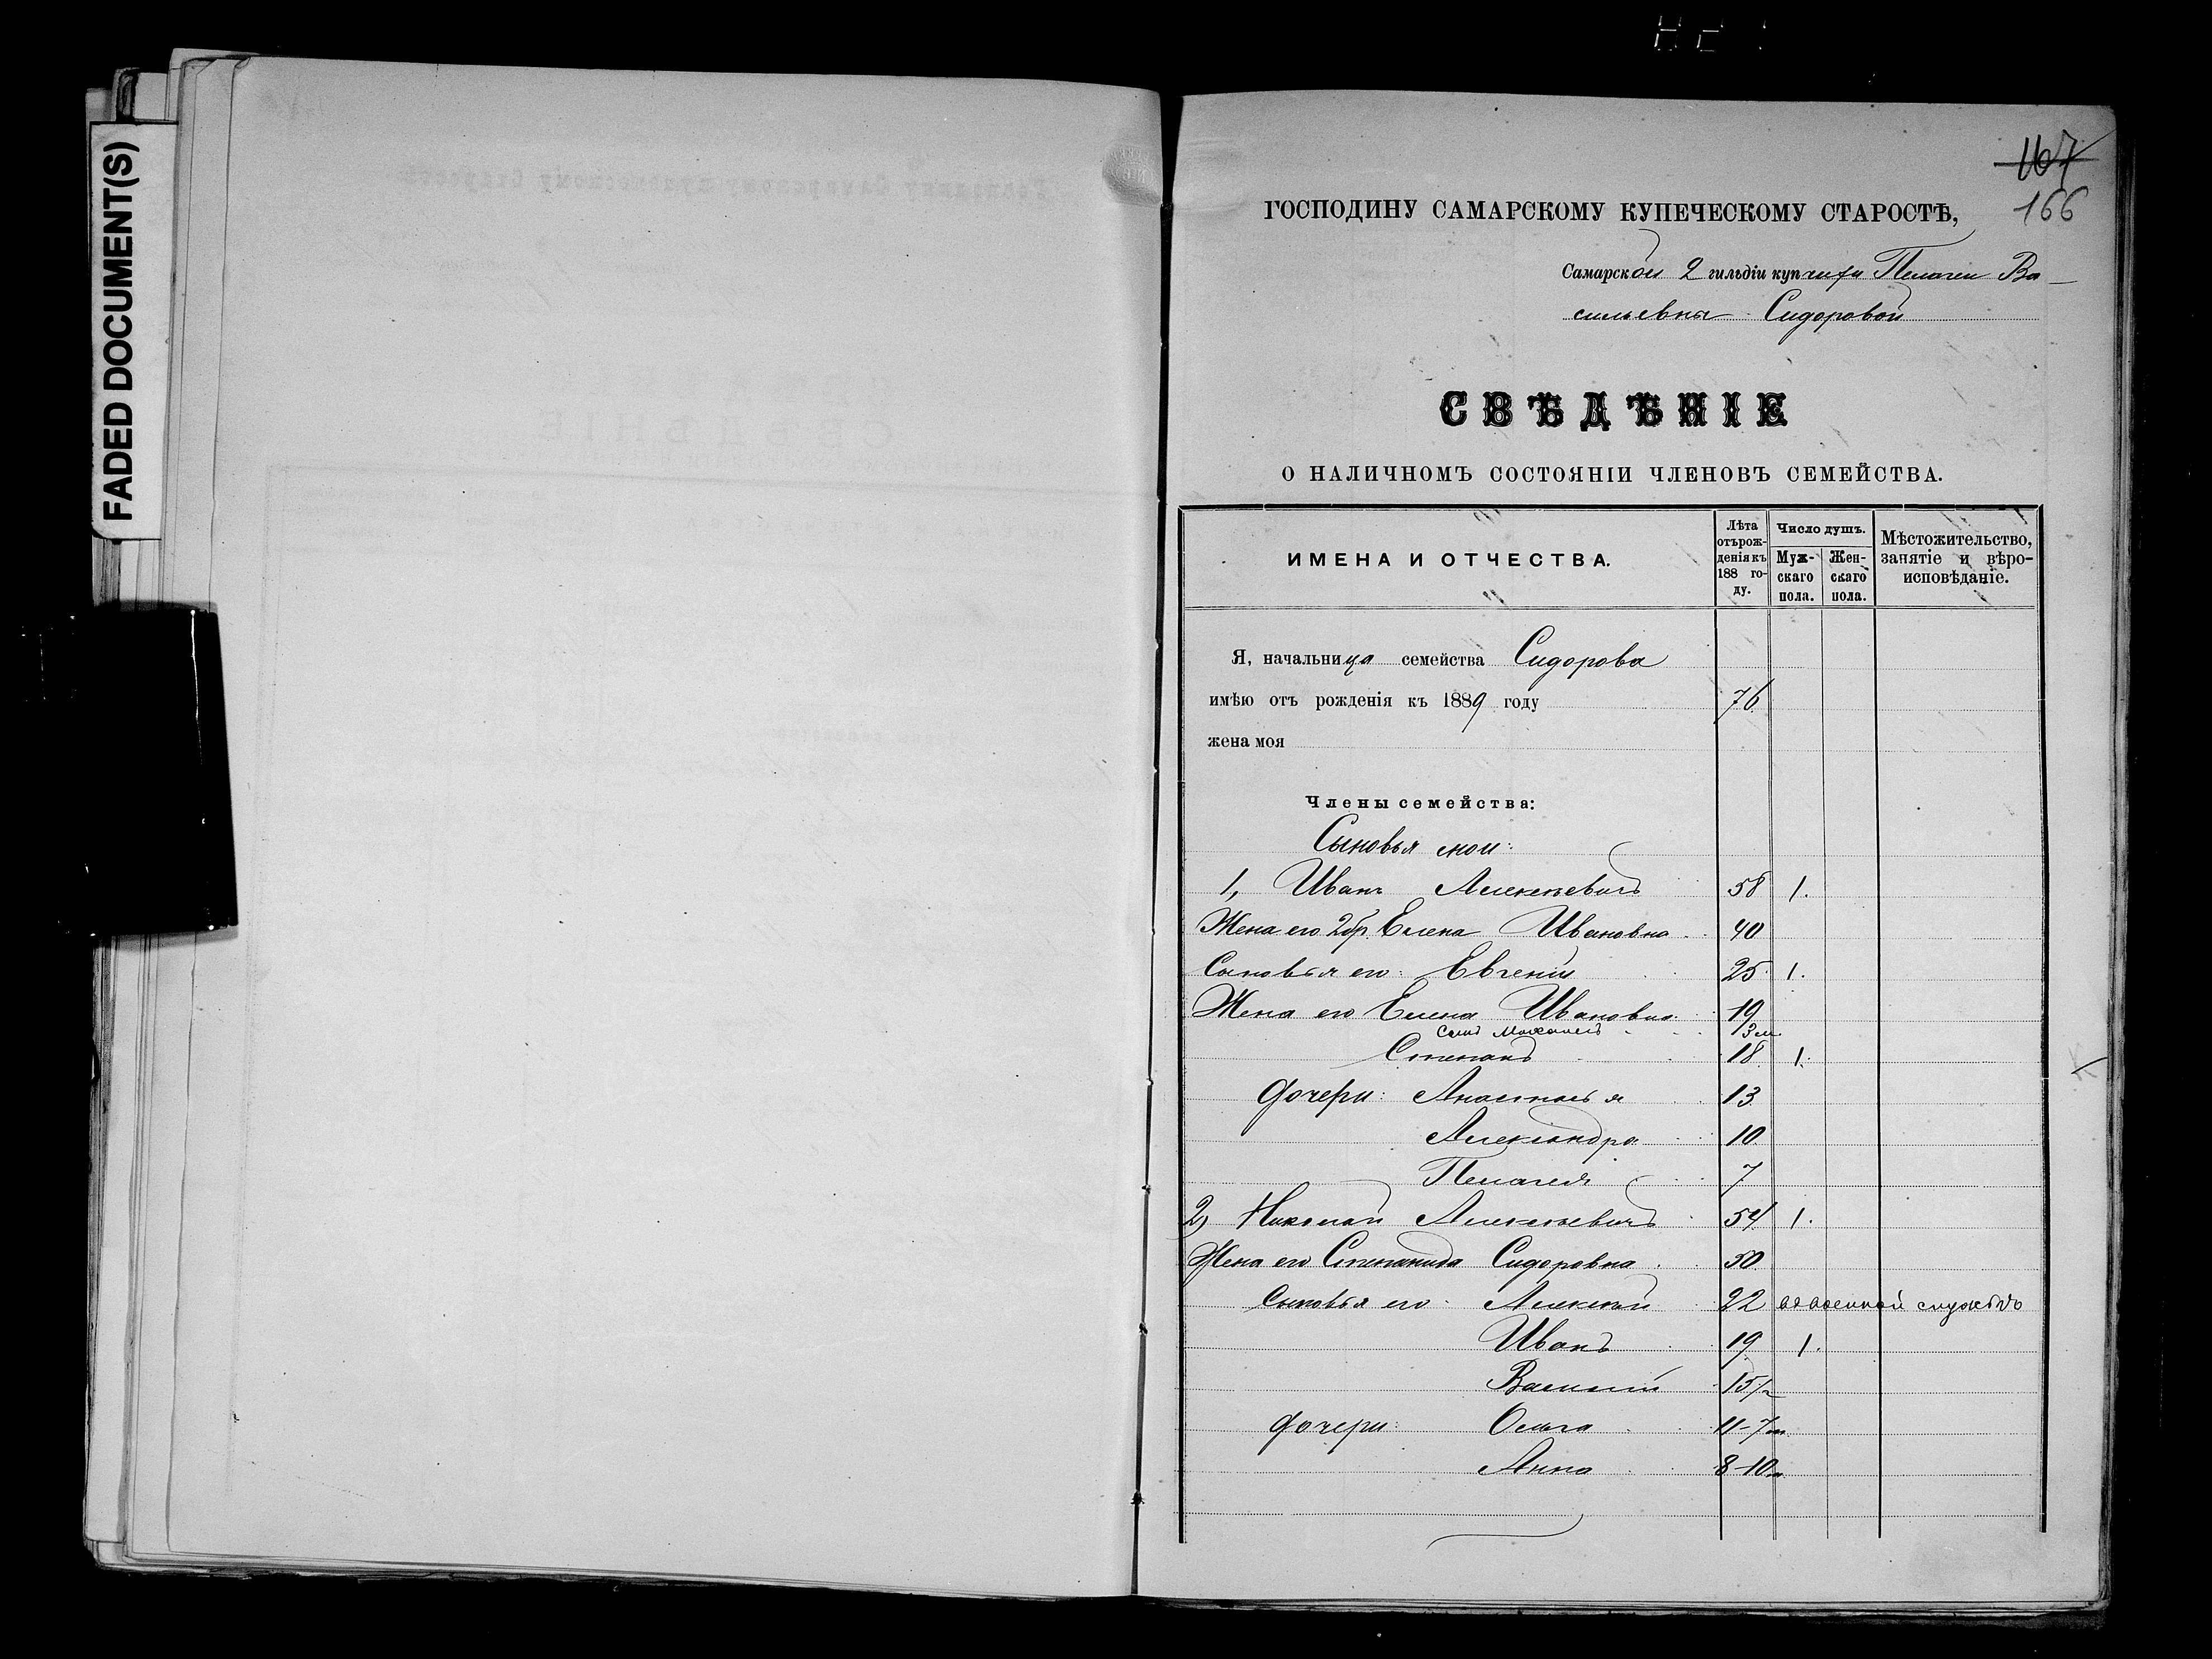 FADED DOCUMENT(S)
167
166
ГОСПОДИНУ САМАРСКОМУ КУПЕЧЕСКОМУ СТАРОСТѢ,
Самарской 2 гильдіи купчихи Пелагеи Ва-
сильевны Сидоровой
СВѢДѢНІЕ
О НАЛИЧНОМЪ СОСТОЯНІИ ЧЛЕНОВЪ СЕМЕЙСТВА.
ИМЕНА И ОТЧЕСТВА.
Лѣта отъ рожденія къ 188 году.
Число душъ.
Мужскаго пола.
Женскаго пола.
Мѣстожительство, занятіе и вѣроисповѣданіе.
Я, начальница семейства Сидорова
имѣю отъ рожденія къ 1889 году 76
жена моя
Члены семейства:
Сыновья мои:
1, Иванъ Алексѣевичъ 58 1.
Жена его 2 бр. Елена Ивановна 40
Сыновья его: Евгений 25 1.
Жена его Елена Ивановна 19
Сынъ Михаилъ 3 м.
Степанъ 18 1.
Дочери: Анастасья 13
Александра 10
Пелагея 7
2) Николай Алексѣевичъ 54 1.
Жена его Степанида Сидоровна 50
Сыновья его Алексѣй 22 въ военной службѣ
Иванъ 19 1.
Василий 15 1/2
Дочери: Ольга 11-7 м.
Анна 8-10 м.